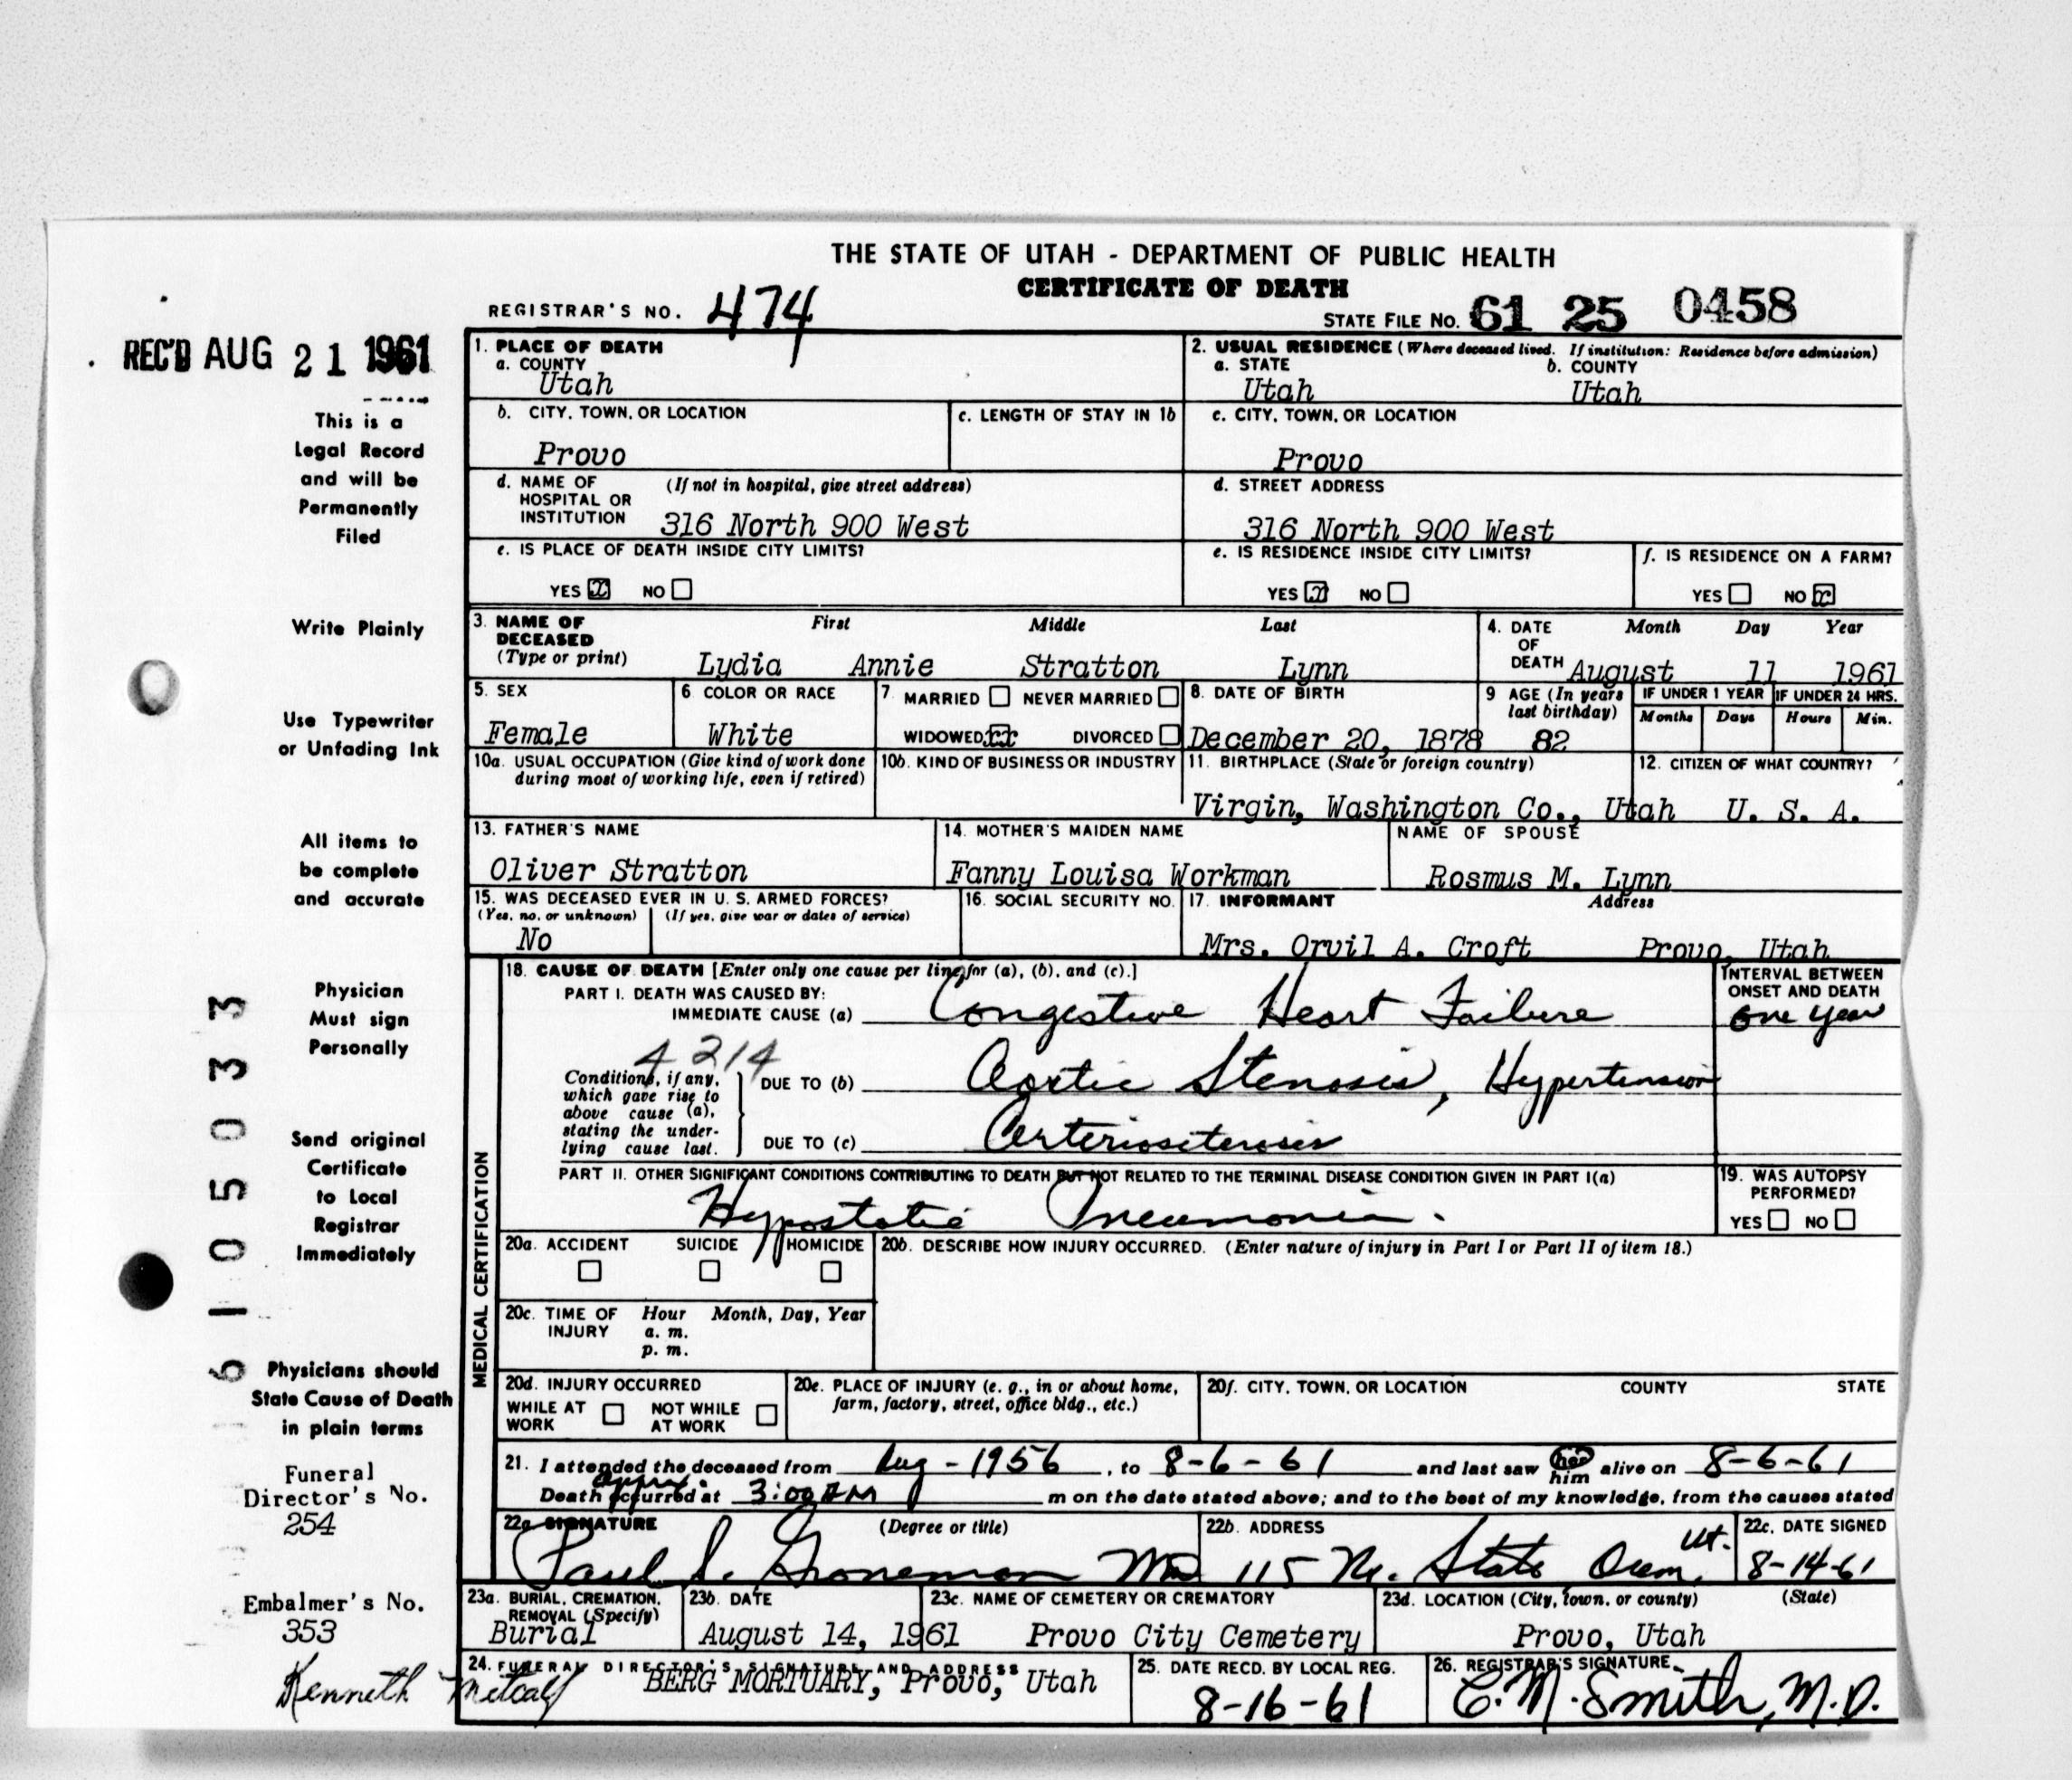 THE STATE OF UTAH - DEPARTMENT OF PUBLIC HEALTH
CERTIFICATE OF DEATH
REGISTRAR'S NO. 474
STATE FILE NO. 61 25 0458
REC'D AUG 21 1961
This is a
Legal Record
and will be
Permanently
Filed
Write Plainly
Use Typewriter
or Unfading Ink
All items to
be complete
and accurate
Physician
Must sign
Personally
Send original
Certificate
to Local
Registrar
Immediately
Physicians should
State Cause of Death
in plain terms
Funeral
Director's No.
254
Embalmer's No.
353
Kenneth Metcalf
61 05033
1. PLACE OF DEATH
a. COUNTY
Utah
2. USUAL RESIDENCE (Where deceased lived. If institution: Residence before admission)
a. STATE b. COUNTY
Utah Utah
b. CITY, TOWN, OR LOCATION c. LENGTH OF STAY IN 1b
Provo
c. CITY, TOWN, OR LOCATION
Provo
d. NAME OF (If not in hospital, give street address)
HOSPITAL OR
INSTITUTION 316 North 900 West
d. STREET ADDRESS
316 North 900 West
e. IS PLACE OF DEATH INSIDE CITY LIMITS?
YES x NO
e. IS RESIDENCE INSIDE CITY LIMITS?
YES x NO
f. IS RESIDENCE ON A FARM?
YES NO x
3. NAME OF First Middle Last
DECEASED
(Type or print) Lydia Annie Stratton Lynn
4. DATE Month Day Year
OF
DEATH August 11 1961
5. SEX
Female
6 COLOR OR RACE
White
7. MARRIED NEVER MARRIED
WIDOWED xx DIVORCED
8. DATE OF BIRTH
December 20, 1878
9 AGE (In years
last birthday)
82
IF UNDER 1 YEAR IF UNDER 24 HRS.
Months Days Hours Min.
10a. USUAL OCCUPATION (Give kind of work done
during most of working life, even if retired)
10b. KIND OF BUSINESS OR INDUSTRY
11. BIRTHPLACE (State or foreign country)
Virgin, Washington Co., Utah
12. CITIZEN OF WHAT COUNTRY?
U. S. A.
13. FATHER'S NAME
Oliver Stratton
14. MOTHER'S MAIDEN NAME
Fanny Louisa Workman
NAME OF SPOUSE
Rosmus M. Lynn
15. WAS DECEASED EVER IN U. S. ARMED FORCES?
(Yes, no, or unknown) (If yes, give war or dates of service)
No
16. SOCIAL SECURITY NO.
17. INFORMANT Address
Mrs. Orvil A. Croft Provo, Utah
MEDICAL CERTIFICATION
18. CAUSE OF DEATH [Enter only one cause per line for (a), (b), and (c).]
PART I. DEATH WAS CAUSED BY:
IMMEDIATE CAUSE (a) Congestive Heart Failure
INTERVAL BETWEEN
ONSET AND DEATH
one year
4214
Conditions, if any,
which gave rise to
above cause (a),
stating the under-
lying cause last.
DUE TO (b) Aortic Stenosis, Hypertension
DUE TO (c) Arteriosclerosis
PART II. OTHER SIGNIFICANT CONDITIONS CONTRIBUTING TO DEATH BUT NOT RELATED TO THE TERMINAL DISEASE CONDITION GIVEN IN PART I(a)
Hypostatic Pneumonia.
19. WAS AUTOPSY
PERFORMED?
YES NO
20a. ACCIDENT SUICIDE HOMICIDE
20b. DESCRIBE HOW INJURY OCCURRED. (Enter nature of injury in Part I or Part II of item 18.)
20c. TIME OF Hour Month, Day, Year
INJURY a. m.
p. m.
20d. INJURY OCCURRED
WHILE AT NOT WHILE
WORK AT WORK
20e. PLACE OF INJURY (e. g., in or about home,
farm, factory, street, office bldg., etc.)
20f. CITY, TOWN, OR LOCATION COUNTY STATE
21. I attended the deceased from Aug - 1956, to 8-6-61 and last saw her him alive on 8-6-61
approx.
Death occurred at 3:00 AM m on the date stated above; and to the best of my knowledge, from the causes stated
22a SIGNATURE (Degree or title)
Paul S. Groneman MD
22b. ADDRESS
115 No. State Orem, Ut.
22c. DATE SIGNED
8-14-61
23a. BURIAL, CREMATION,
REMOVAL (Specify)
Burial
23b. DATE
August 14, 1961
23c. NAME OF CEMETERY OR CREMATORY
Provo City Cemetery
23d. LOCATION (City, town, or county) (State)
Provo, Utah
24. FUNERAL DIRECTOR'S SIGNATURE AND ADDRESS
BERG MORTUARY, Provo, Utah
25. DATE RECD. BY LOCAL REG.
8-16-61
26. REGISTRAR'S SIGNATURE
C. M. Smith, M.D.